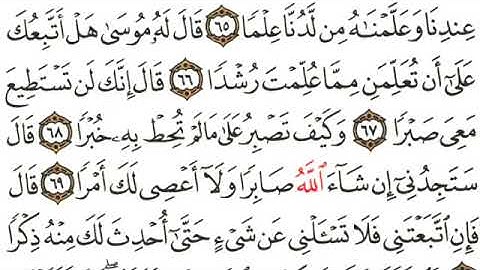 عِندِنَا وَعَلَّمْنَٰهُ مِن لَّدُنَّا عِلْمًا ٦٥ قَالَ لَهُۥ مُوسَىٰ هَلْ أَتَّبِعُكَ
عَلَىٰٓ أَن تُعَلِّمَنِ مِمَّا عُلِّمْتَ رُشْدًا ٦٦ قَالَ إِنَّكَ لَن تَسْتَطِيعَ
مَعِىَ صَبْرًا ٦٧ وَكَيْفَ تَصْبِرُ عَلَىٰ مَا لَمْ تُحِطْ بِهِۦ خُبْرًا ٦٨ قَالَ
سَتَجِدُنِىٓ إِن شَآءَ ٱللَّهُ صَابِرًا وَلَآ أَعْصِى لَكَ أَمْرًا ٦٩ قَالَ
فَإِنِ ٱتَّبَعْتَنِى فَلَا تَسْـَٔلْنِى عَن شَىْءٍ حَتَّىٰٓ أُحْدِثَ لَكَ مِنْهُ ذِكْرًا